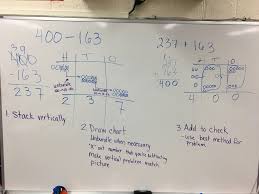 400-163
237+163
39
400
-163
237
H T O
2 3 7
H T O
4 0 0
1. Stack vertically
2. Draw chart
Unbundle when necessary
"x" out number that you're subtracting
Make vertical problem match
picture
3. Add to check
-use best method for
problem